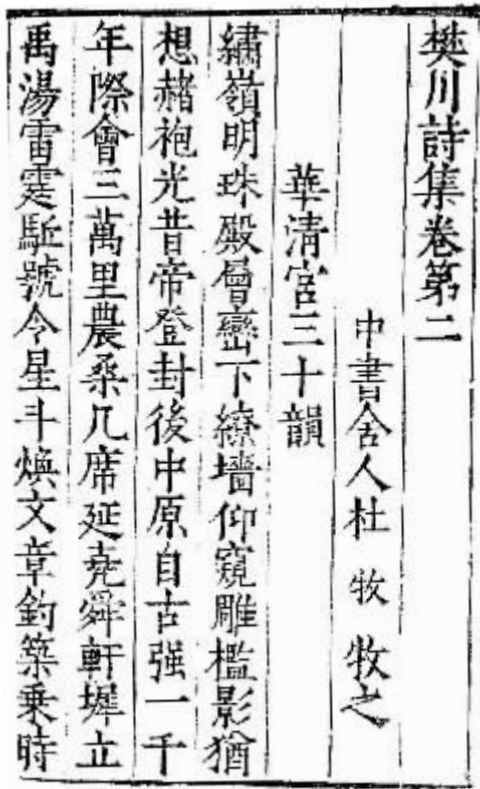 樊川詩集卷第二
中書舍人杜 牧 牧之
華清宮三十韻
繡嶺明珠殿層巒下繚墻仰窺雕檻影猶
想赭袍光昔帝登封後中原自古强一千
年際會三萬里農桑几席延堯舜軒墀立
禹湯雷霆馳號令星斗煥文章釣築乗時